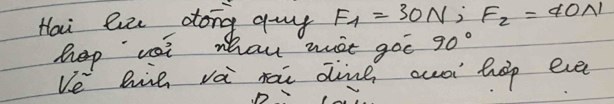 Hai lực đồng quy F₁ = 30N; F₂ = 40N
hợp với nhau một góc 90°
Vẽ hình và xác định hợp lực